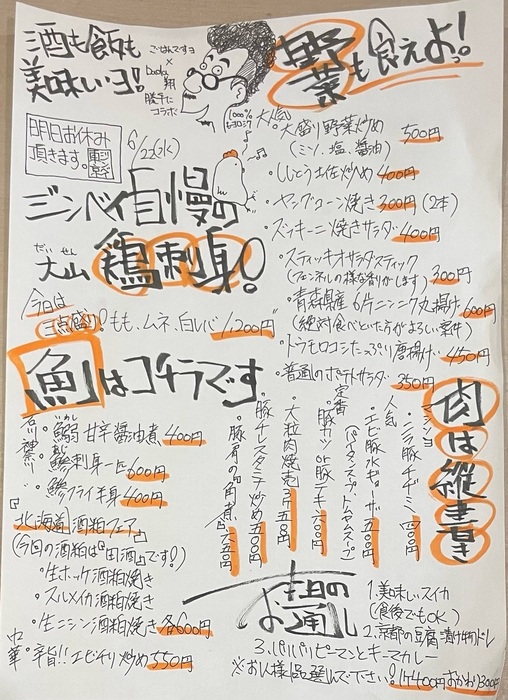 酒も飯も
美味いヨ!
ごはんですョ
×
翔
勝手に
コラボ
野菜も食えよっ!
明日お休み
頂きます。
6/22(火)
100%
大人気
・大盛り野菜炒め 500円
(ミソ、塩、醤油)
・ししとう土佐炒め 400円
・ヤングコーン焼き 300円(2本)
・ズッキーニ焼きサラダ 400円
・スティッキオサラダスティック
(フェンネルの様な香りがします) 300円
・青森県産 6片ニンニク丸揚げ 600円
(絶対食べといた方がよろしい案件)
・トウモロコシたっぷり唐揚げ 450円
・普通のポテトサラダ 350円
ジンベイ自慢の
だいせん
大山鶏刺身!
今日は
三点盛り!もも、ムネ、白レバ 1,200円
魚はコチラです
石川
・鰯甘辛醤油煮 400円
・鯵刺身一匹 600円
・鰺フライ半身 400円
『北海道酒粕フェア』
(今回の酒粕は『田酒』です!)
・生ホッケ酒粕焼き
・スルメイカ酒粕焼き
・生ニシン酒粕焼き 各600円
中華
・辛旨!!エビチリ炒め 550円
肉は縦書き
・ニラ豚チヂミ 四〇〇円
人気
・エビ豚水ギョーザ 五〇〇円
(パクタンスープ、トムヤムスープ)
定番
・豚カツor豚テキ 六〇〇円
・大粒肉焼売 3ケ五〇〇円
・豚チレスタミナ炒め 五〇〇円
・豚肩の角煮 六五〇円
本日のお通し
1.美味しいスイカ
(食後でもOK)
2.京都の豆腐
3.パリパリピーマンとキーマカレー
※お1人様1品選んで下さい! 1ケ400円おかわり300円